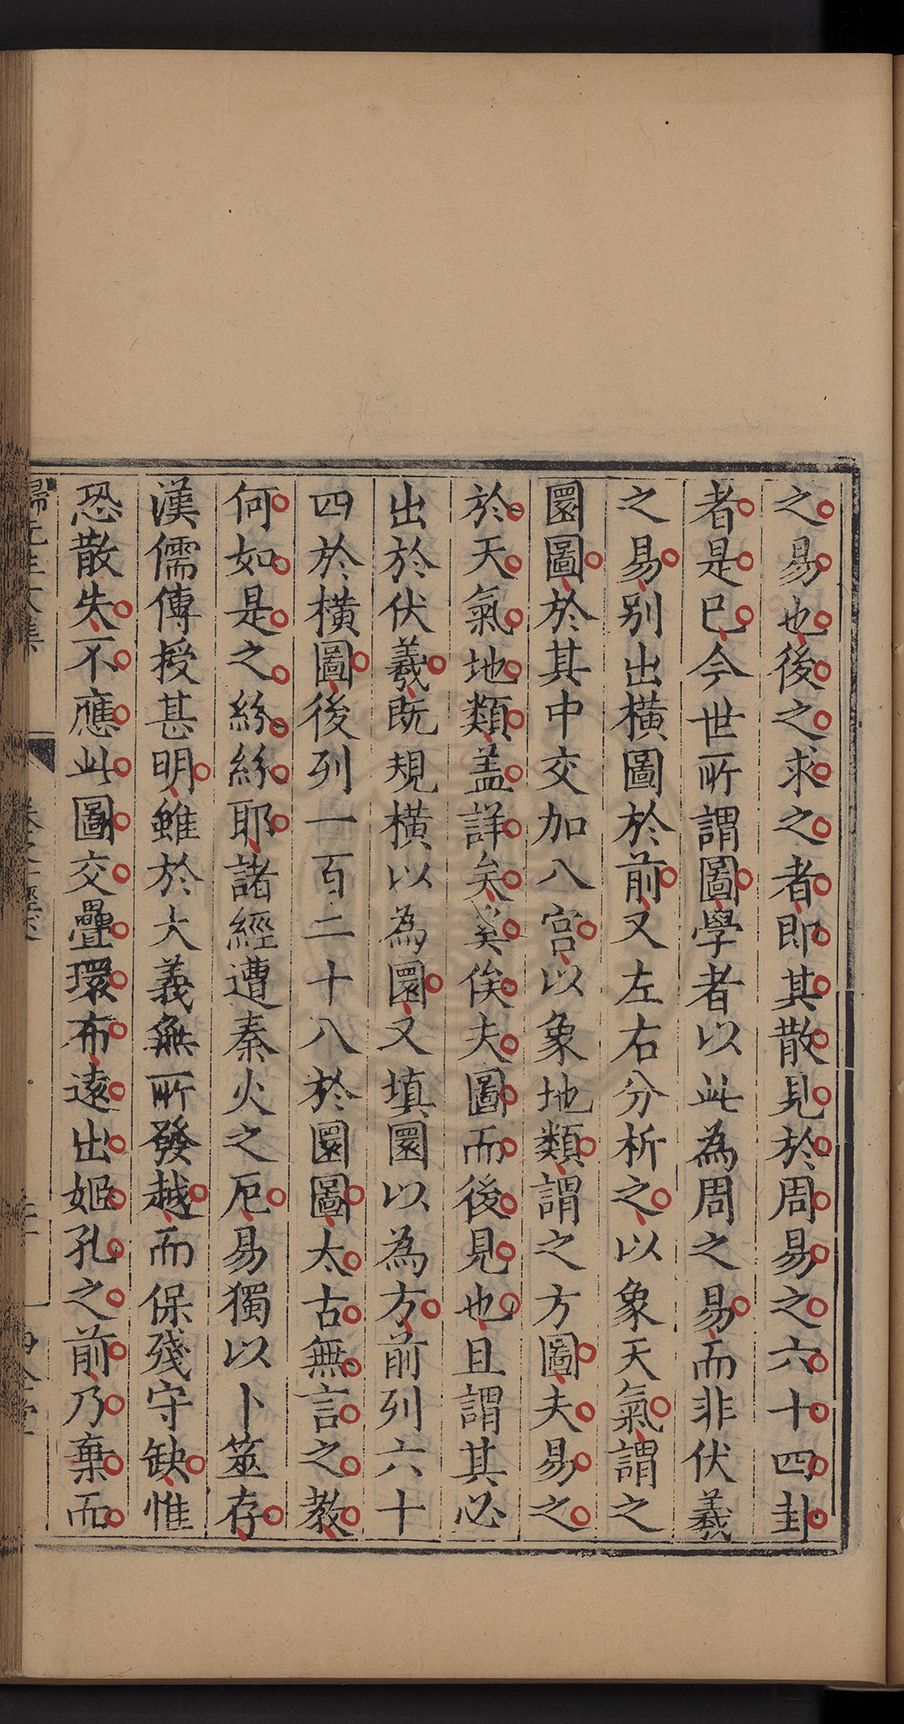 之易也後之求之者即其散見於周易之六十四卦
者是已今世所謂圖學者以此為周之易而非伏羲
之易别出橫圖於前又左右分析之以象天氣謂之
圜圖於其中交加八宮以象地類謂之方圖夫易之
於天氣地類盖詳矣奚俟夫圖而後見也且謂其必
出於伏羲既規橫以為圜又填圜以為方前列六十
四於橫圖後列一百二十八於圜圖太古無言之教
何如是之紛紛耶諸經遭秦火之厄易獨以卜筮存
漢儒傳授甚明雖於大義無所發越而保殘守缺惟
恐散失不應此圖交疊環布遠出姬孔之前乃棄而